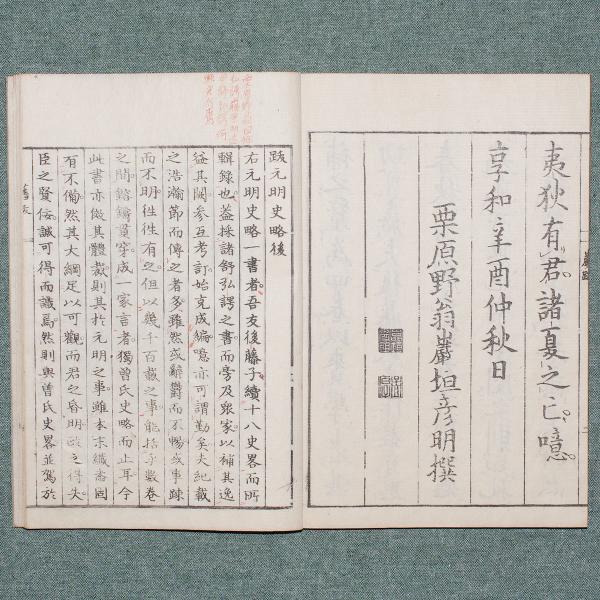 夷狄有君諸夏之亡噫
享和辛酉仲秋日
栗原野翁巖垣彦明撰
跋元明史略後
右元明史略一書者吾友後藤子續十八史畧而所
輯錄也蓋採諸舒弘諤之書而旁及衆家以補其逸
益其闕參互考訂始克成編噫亦可謂勤矣夫紀載
之浩瀚節而傳之者多雖然或辭欝而不暢或事踈
而不明徃徃有之但以幾千百載之事能括乎數卷
之間鎔鑄貫穿成一家言者獨曾氏史略而止耳今
此書亦倣其體裁則其於元明之事雖本末纎悉固
有不備然其大綱足以可觀而君之昏明政之得失
臣之賢佞誠可得而識焉然則與曽氏史畧並駕於